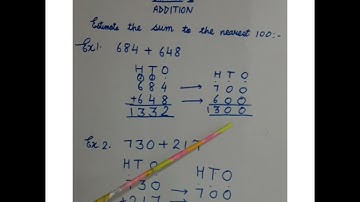 ADDITION
Estimate the sum to the nearest 100:-
Ex1. 684 + 648
H T O    H T O
6 8 4 → 7 0 0
+6 4 8 → 6 0 0
1 3 3 2    1 3 0 0
Ex 2. 730 + 217
H T O    H T O
7 3 0 → 7 0 0
+2 1 7 →